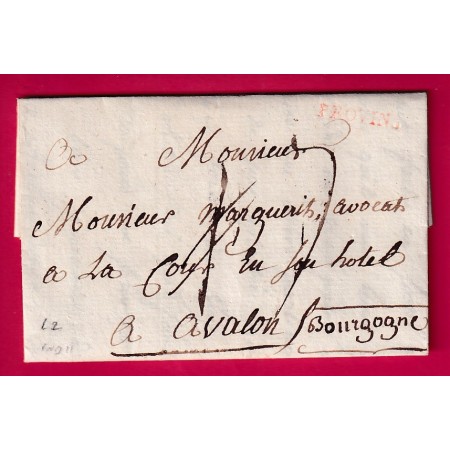 PROVINS
A Monsieur
Monsieur Marguerit, avocat
a La Cour En son hotel
a avalon / Bourgogne
L2